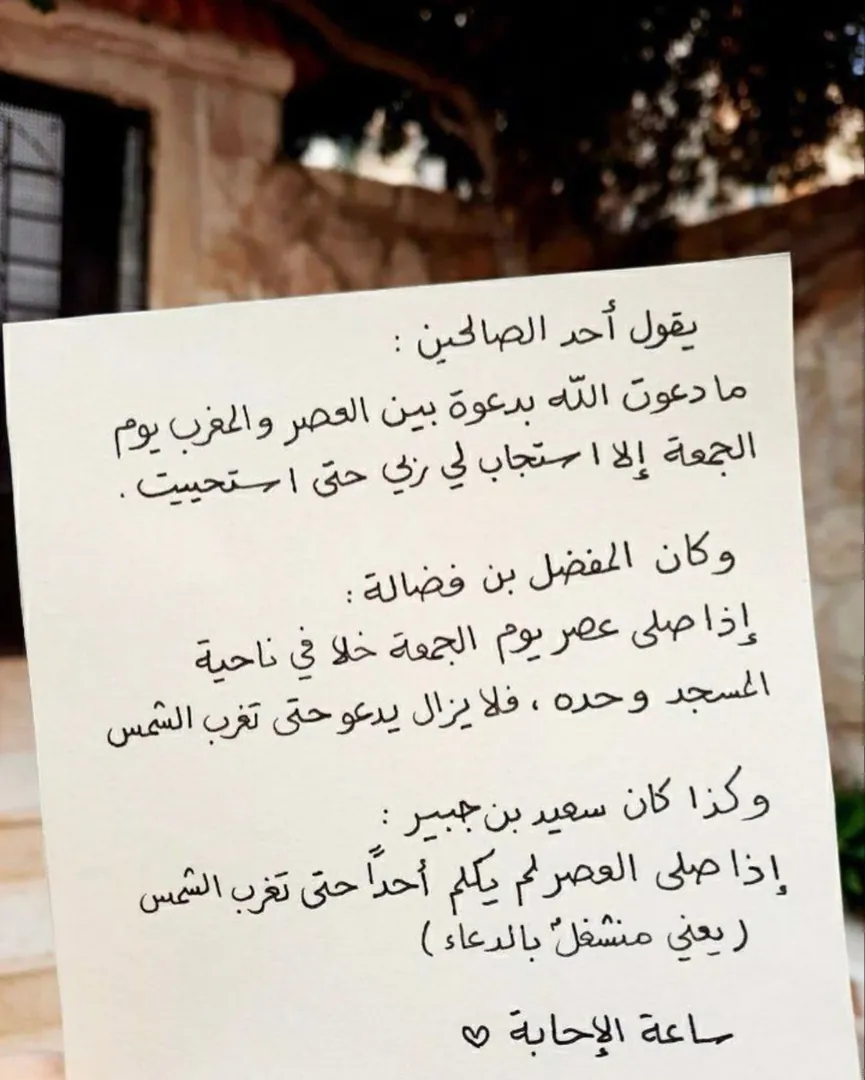 يقول أحد الصالحين :
ما دعوت الله بدعوة بين العصر والمغرب يوم
الجمعة إلا استجاب لي ربي حتى استحييت .
وكان المفضل بن فضالة :
إذا صلى عصر يوم الجمعة خلا في ناحية
المسجد وحده ، فلا يزال يدعو حتى تغرب الشمس
وكذا كان سعيد بن جبير :
إذا صلى العصر لم يكلم أحداً حتى تغرب الشمس
( يعني منشغلٌ بالدعاء )
ساعة الإجابة ♡